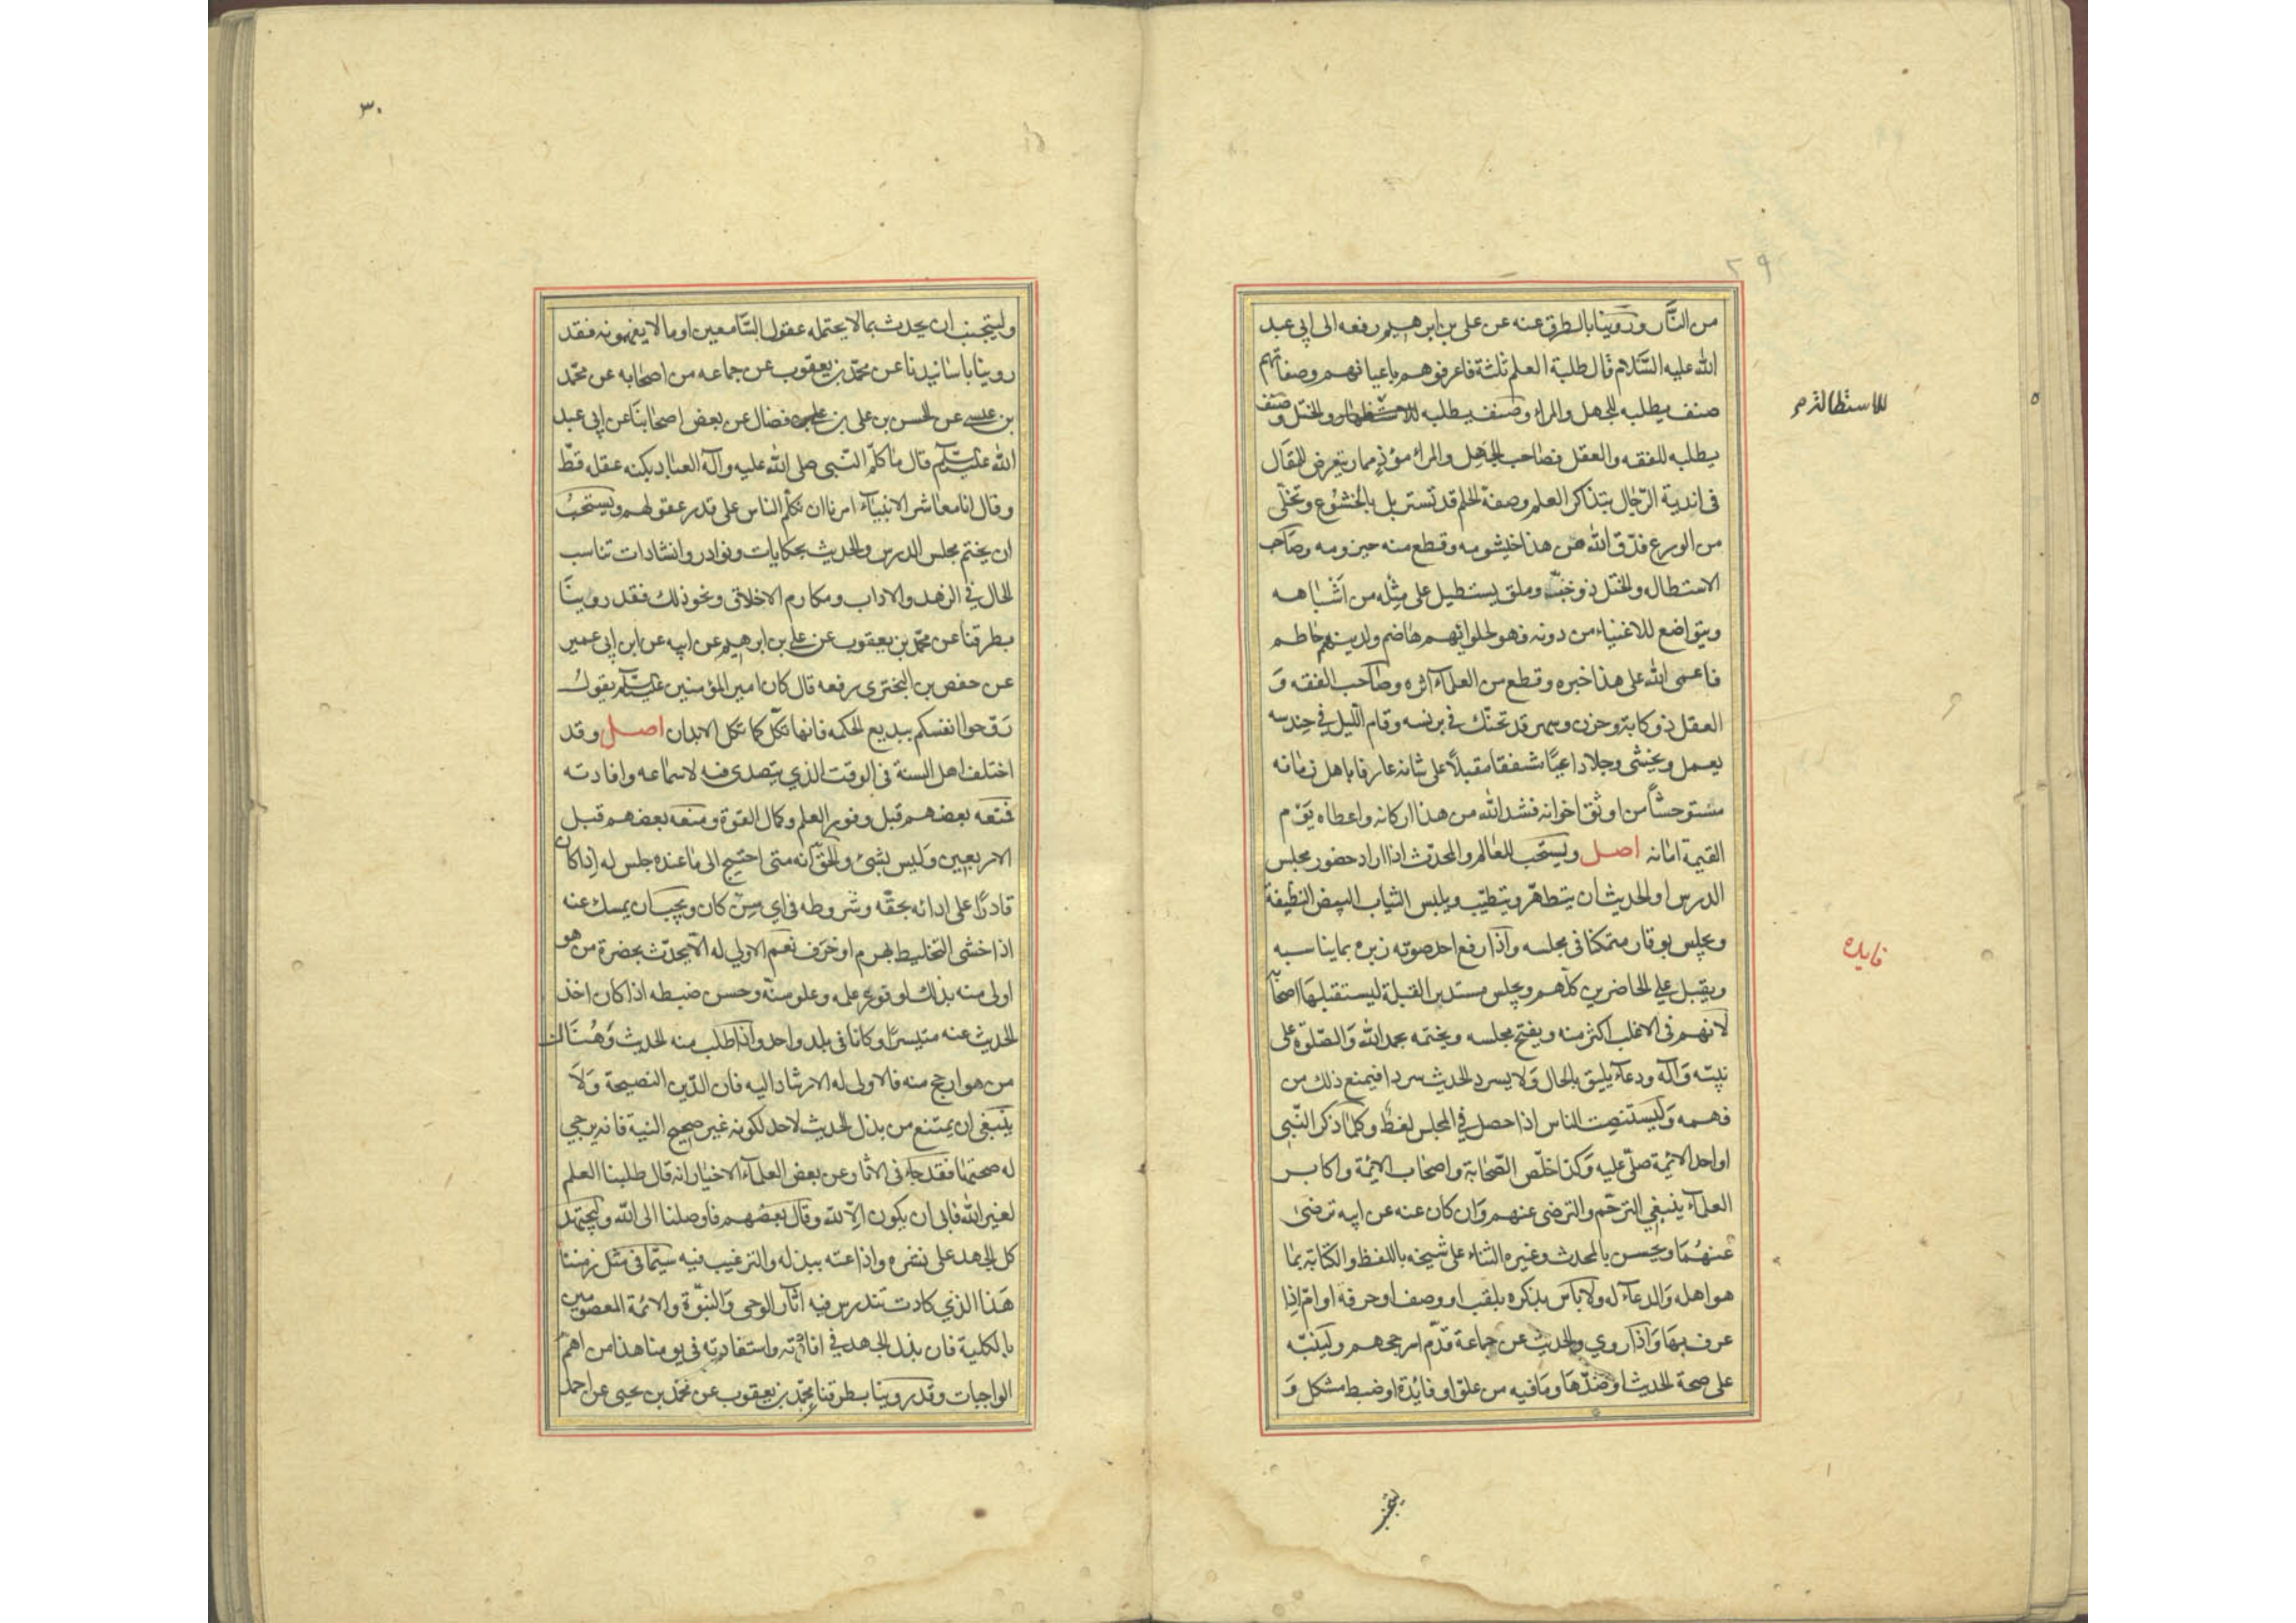 من النار وروينا بالطرق عنه عن علي بن ابرهيم رفعه الى ابي عبد
الله عليه السلام قال طلبة العلم ثلثة فاعرفوهم باعيانهم وصفاتهم
صنف يطلبه للجهل والمراء وصنف يطلبه للاستطالة والختل وصنف
يطلبه للفقه والعقل فصاحب الجهل والمراء مؤذ ممار يتعرض للمقال
فى اندية الرجال بتذاكر العلم وصفة الحلم قد تسربل بالخشوع وتخلى
من الورع فدق الله من هذا خيشومه وقطع منه حيزومه وصاحب
الاستطال والختل ذو خب وملق يستطيل على مثله من اشباهه
ويتواضع للاغنياء من دونه فهو لحلوائهم هاضم ولدينهم حاطم
فاعمى الله على هذا خبره وقطع من العلماء اثره وصاحب الفقه و
العقل ذو كابة وحزن وسهر قد تحنك فى برنسه وقام الليل في حندسه
يعمل ويخشى وجلا داعيا مشفقا مقبلا على شانه عارفا باهل زمانه
مستوحشا من اوثق اخوانه فشد الله من هذا اركانه واعطاه يوم
القيمة امانه اصل ويستحب للعالم والمحدث اذا اراد حضور مجلس
الدرس او الحديث ان يتطهر ويتطيب ويلبس الثياب البيض النظيفة
ويجلس بوقار متمكنا فى مجلسه واذا رفع احد صوته زبره بما يناسبه
ويقبل على الحاضرين كلهم ويجلس مستدبر القبلة ليستقبلها اصحابه
لانهم فى الاغلب اكثر منه ويفتح مجلسه ويختمه بحمد الله والصلوة على
نبيه وآله ودعاء يليق بالحال ولا يسرد الحديث سردا فيمنع ذلك من
فهمه وليستنصت الناس اذا حصل في المجلس لغط وكلما ذكر النبي
او احد الائمة صلى عليه وكذا خلص الصحابة واصحاب الائمة واكابر
العلماء ينبغي الترحم والترضى عنهم وان كان عنه عن ابيه ترضى
عنهما ويحسن بالمحدث وغيره الثناء على شيخه باللفظ والكتابة بما
هو اهله والدعاء له ولا باس بذكره بلقب او وصف او حرفة او ام اذا
عرف بها واذا روي والحديث عن جماعة قدم ارجحهم ولينبه
على صحة الحديث او ضدها وما فيه من علو او فائدة او ضبط مشكل و
للاستطالة
فايده
ليتجنب
٣٠
وليتجنب ان يحدث بما لا يحتمله عقول السامعين او ما لا يفهمونه فقد
روينا باسانيدنا عن محمد بن يعقوب عن جماعه من اصحابه عن محمد
بن عيسى عن الحسن بن على بن فضال عن بعض اصحابنا عن ابي عبد
الله عليه السلم قال ما كلم النبي صلى الله عليه وآله العباد بكنه عقله قط
وقال انا معاشر الانبياء امرنا ان نكلم الناس على قدر عقولهم ويستحب
ان يختم مجلس الدرس والحديث بحكايات ونوادر وانشادات تناسب
الحال في الزهد والاداب ومكارم الاخلاق ونحو ذلك فقد روينا
بطرقنا عن محمد بن يعقوب عن على بن ابرهيم عن ابيه عن ابن ابي عمير
عن حفص بن البخترى رفعه قال كان امير المؤمنين عليه السلم يقول
روحوا انفسكم ببديع الحكمه فانها تكل كما تكل الابدان اصل وقد
اختلف اهل السنة فى الوقت الذي يتصدى فيه لاسماعه وافادته
فمنعه بعضهم قبل وفور العلم وكمال القوة ومنعه بعضهم قبل
الاربعين وليس بشئ والحق انه متى احتيج الى ما عنده جلس له اذا كان
قادرا على ادائه بحقه وشروطه فى اى سن كان ويجب ان يمسك عنه
اذا خشى التخليط بهرم او خرف نعم الاولى له الا يحدث بحضرة من هو
اولى منه بذلك لوفور علمه وعلو سنه وحسن ضبطه اذا كان اخذ
الحديث عنه متيسرا وكانا فى بلد واحد واذا طلب منه الحديث وهناك
من هو ارجح منه فالاولى له الارشاد اليه فان الدين النصيحة ولا
ينبغى ان يمتنع من بذل الحديث لاحد لكونه غير صحيح النية فانه يرجى
له صحتها فقد جاء فى الاثار عن بعض العلماء الاخيار انه قال طلبنا العلم
لغير الله فابى ان يكون الا لله وقال بعضهم فاوصلنا الى الله وليجتهد
كل الجهد على نشره واذاعته ببذله والترغيب فيه سيما فى مثل زمننا
هذا الذي كادت تندرس فيه اثار الوحى والنبوة والائمة المعصومين
بالكلية فان بذل الجهد في افادته واستفادته فى يومنا هذا من اهم
الواجبات وقد روينا بطرقنا عن محمد بن يعقوب عن محمد بن يحيى عن احمد